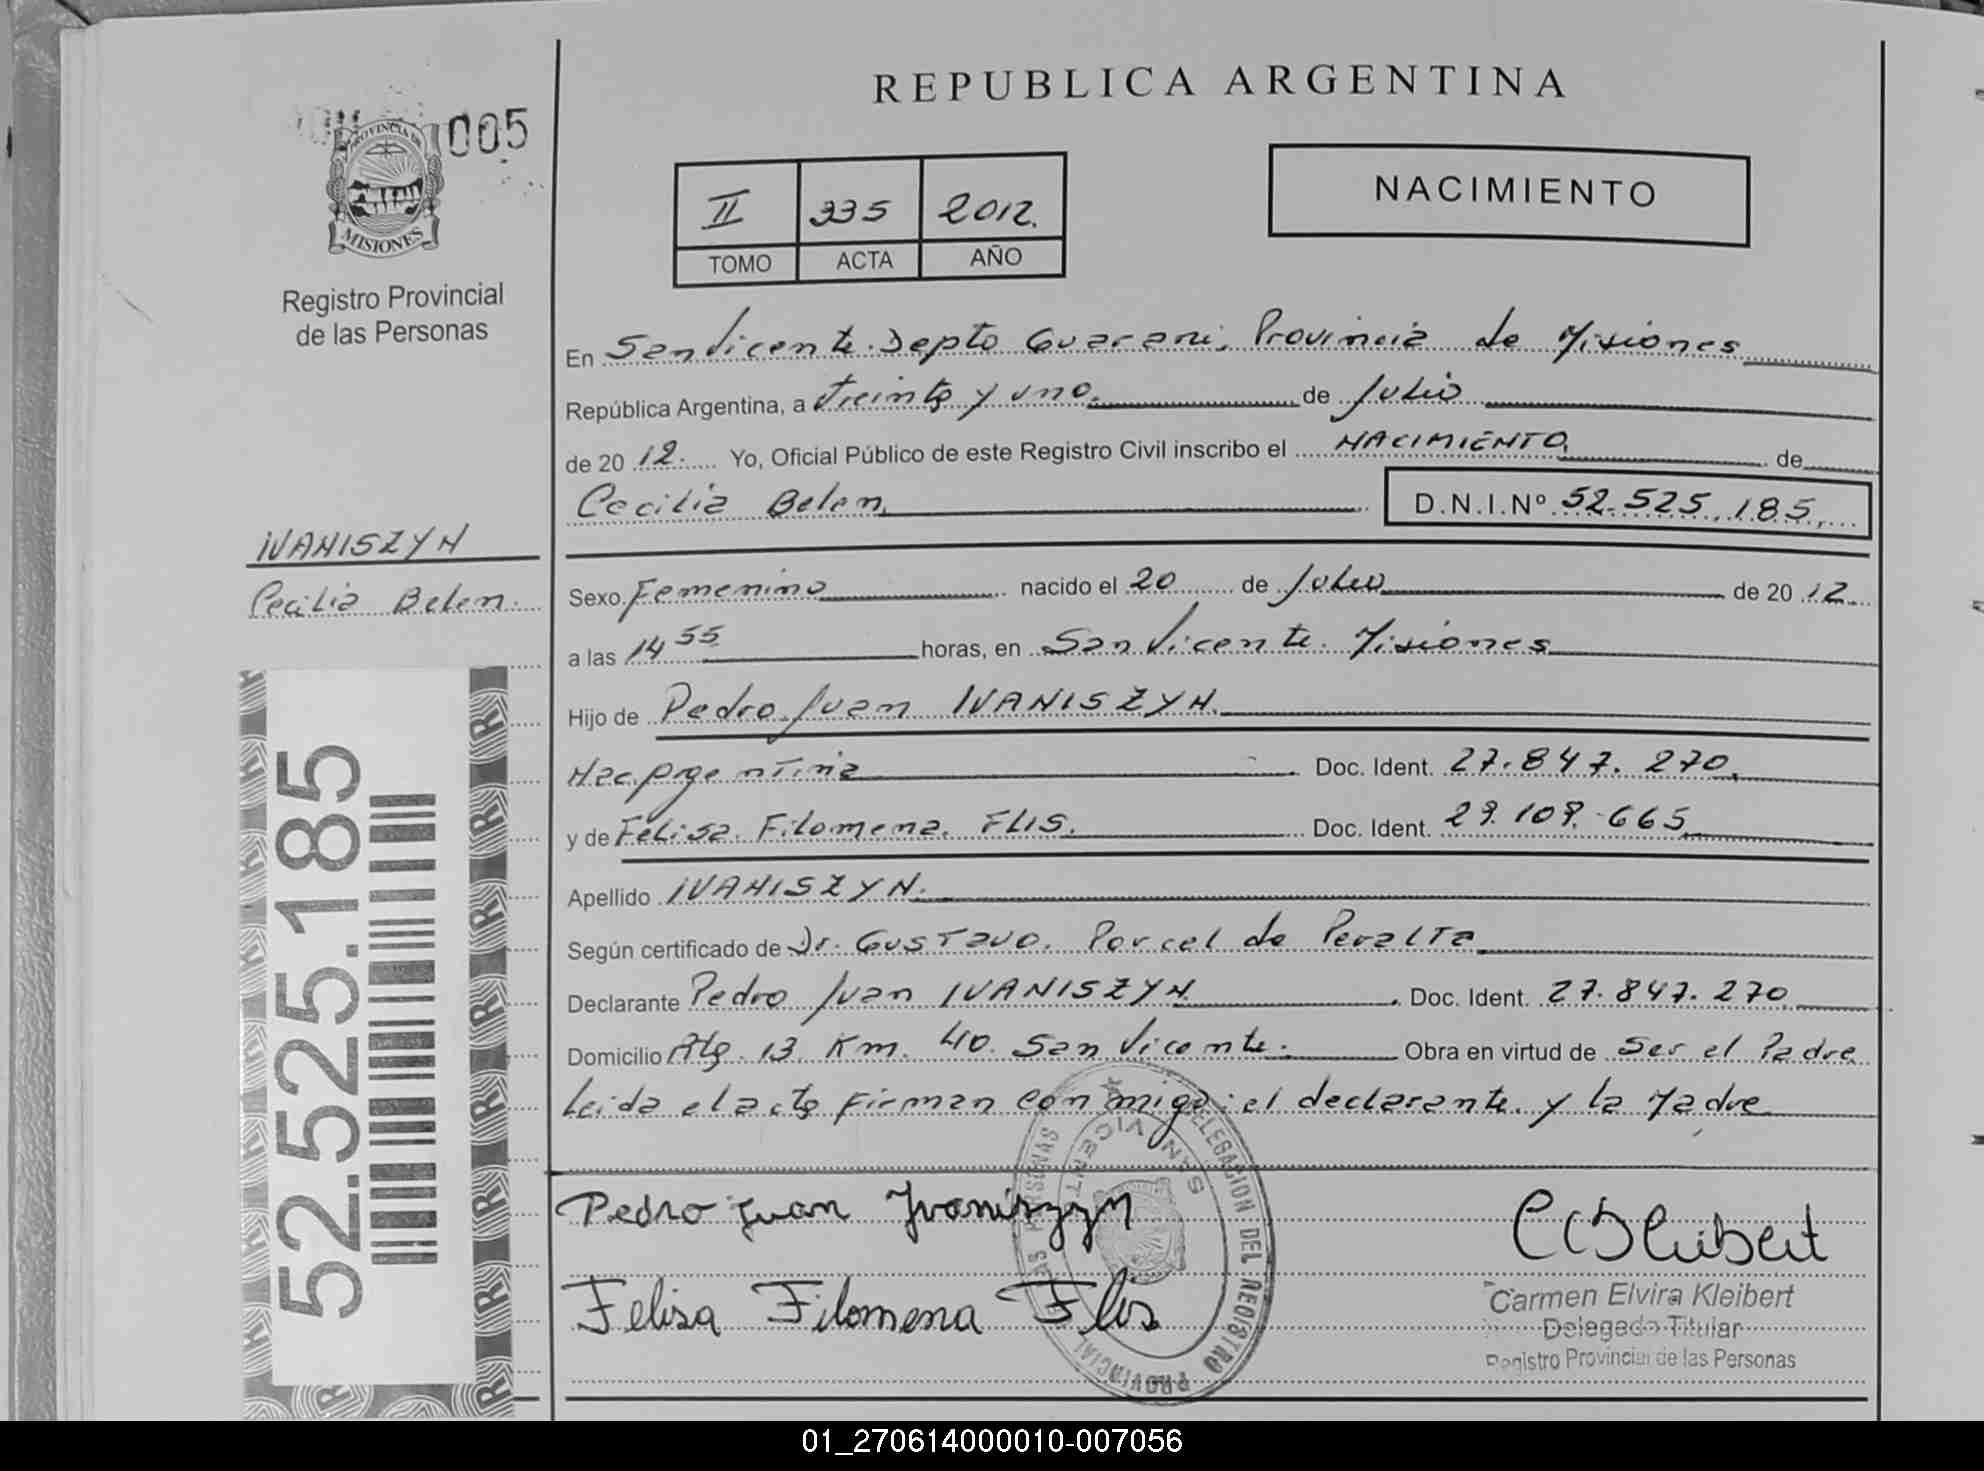 REPUBLICA ARGENTINA
005
PROVINCIA DE
MISIONES
Registro Provincial
de las Personas
II 335 2012.
TOMO ACTA AÑO
NACIMIENTO
En San Vicente. Depto Guarani, Provincia de Misiones
República Argentina, a treinta y uno. de Julio
de 20 12. Yo, Oficial Público de este Registro Civil inscribo el NACIMIENTO, de
Cecilia Belen, D.N.I.Nº 52.525.185,
IVANISZYN
Cecilia Belen.
Sexo Femenino nacido el 20 de Julio de 20 12
a las 14 55 horas, en San Vicente. Misiones
Hijo de Pedro Juan IVANISZYN.
Nac. Argentina Doc. Ident. 27.847.270,
y de Felisa. Filomena. FLIS. Doc. Ident. 29.109.665
Apellido IVANISZYN.
Según certificado de Dr. Gustavo. Porcel de Peralta
Declarante Pedro Juan IVANISZYN Doc. Ident. 27.847.270
Domicilio Alg. 13 Km. 40. San Vicente. Obra en virtud de Ser el Padre
Leida el acta firman conmigo: el declarante. y la Madre
52.525.185
Pedro Juan Ivaniszyn
Felisa Filomena Flis
DELEGACION DEL REGISTRO PROVINCIAL DE LAS PERSONAS
SAN VICENTE
Carmen Elvira Kleibert
Delegado Titular
Registro Provincial de las Personas
01_270614000010-007056